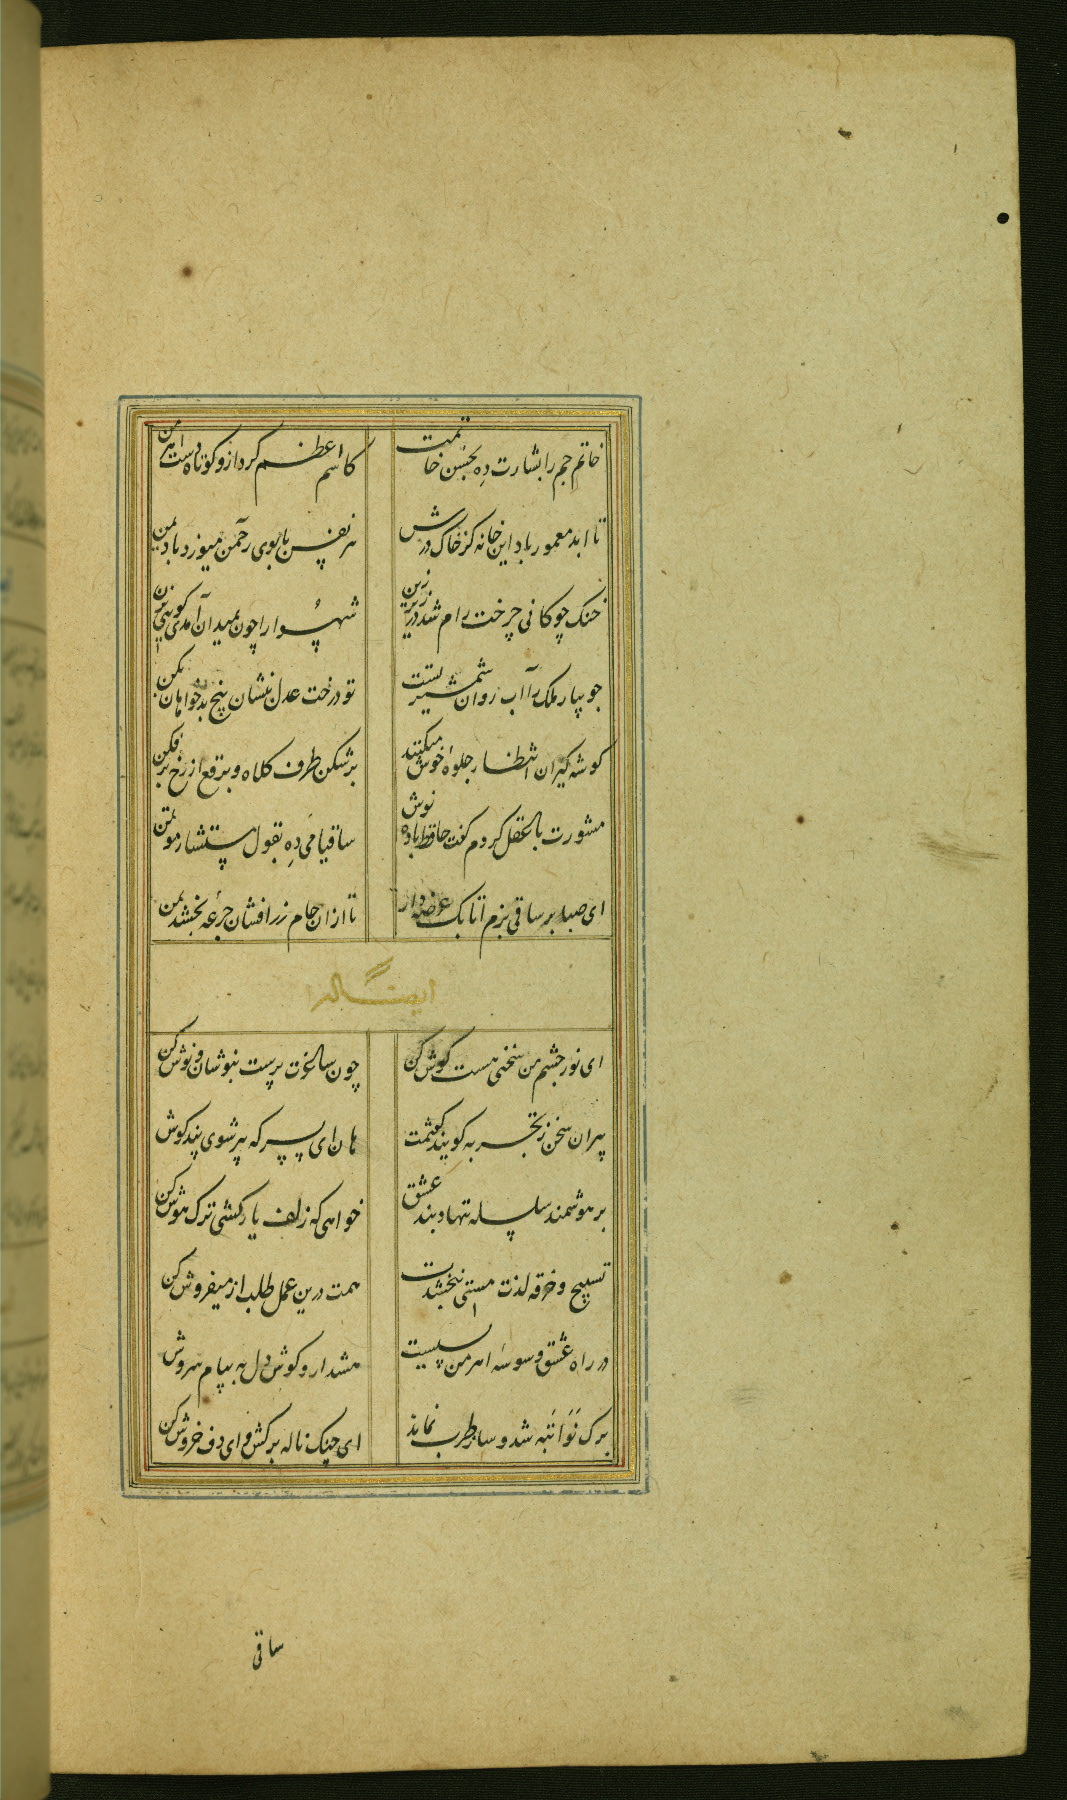 خاتم جم را بشارت ده بحسن خاتمت
کاسم اعظم کرد ازو کوتاه دست اهرمن
تا ابد معمور باد این خانه کز خاک درش
هر نفس با بوی رحمن میوزد باد یمن
خنک چوکانی چرخت رام شد در زیر زین
شهسوارا چون بمیدان آمدی کویی بزن
جویبار ملک را آب روان شمشیر تست
تو درخت عدل بنشان بیخ بدخواهان بکن
کوشه کیران انتظار جلوهٔ خوش میکنند
برشکن طرف کلاه و برقع از رخ برفکن
مشورت با عقل کردم کفت حافظ باده نوش
ساقیا می ده بقول مستشار مؤتمن
ای صبا بر ساقی بزم اتابک عرضه دار
تا ازان جام زرافشان جرعه بخشد بمن
ایضاً له
ای نور چشم من سخنی هست کوش کن
چون ساغرت پرست بنوشان و نوش کن
پیران سخن ز تجربه کویند کفتمت
هان ای پسر که پیر شوی پند کوش کن
بر هوشمند سلسله ننهاد بند عشق
خواهی که زلف یار کشی ترک هوش کن
تسبیح و خرقه لذت مستی نبخشدت
همت درین عمل طلب از میفروش کن
در راه عشق وسوسهٔ اهرمن بسیست
هشدار و کوش دل به پیام سروش
برک نوا تبه شد و ساز طرب نماند
ای چنک ناله برکش و ای دف خروش کن
ساقی